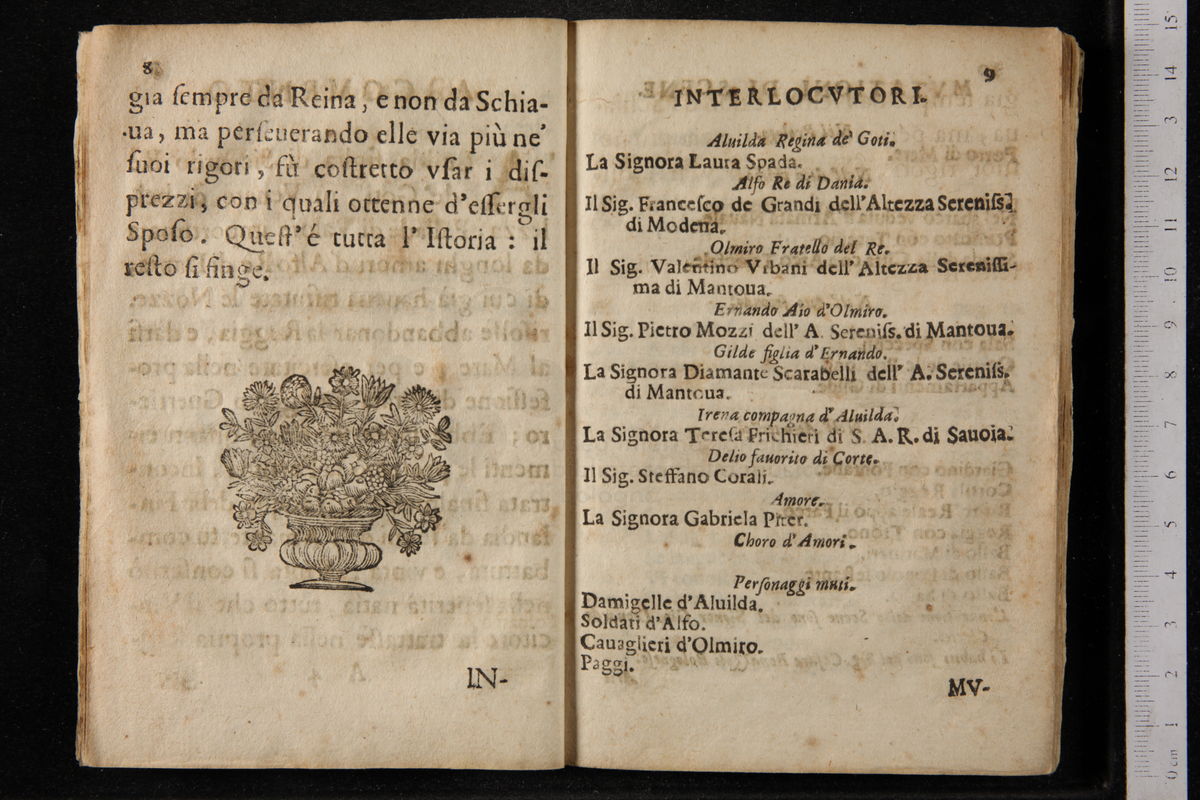 8
gia ſempre da Reina, e non da Schia-
ua, ma perſeuerando elle via più ne'
ſuoi rigori, fù coſtretto vſar i diſ-
prezzi, con i quali ottenne d'eſſergli
Spoſo. Queſt'é tutta l'Iſtoria: il
reſto ſi finge.
IN-
9
INTERLOCVTORI.
Aluilda Regina de' Goti.
La Signora Laura Spada.
Alfo Re di Dania.
Il Sig. Franceſco de Grandi dell'Altezza Sereniſs.
di Modena.
Olmiro Fratello del Re.
Il Sig. Valentino Vrbani dell'Altezza Sereniſſi-
ma di Mantoua.
Ernando Aio d'Olmiro.
Il Sig. Pietro Mozzi dell'A. Sereniſs. di Mantoua.
Gilde figlia d'Ernando.
La Signora Diamante Scarabelli dell'A. Sereniſs.
di Mantoua.
Irena compagna d'Aluilda.
La Signora Tereſa Frichieri di S. A. R. di Sauoia.
Delio fauorito di Corte.
Il Sig. Steffano Corali.
Amore.
La Signora Gabriela Piter.
Choro d'Amori.
Perſonaggi muti.
Damigelle d'Aluilda.
Soldati d'Alfo.
Cauaglieri d'Olmiro.
Paggi.
MV-
15
14
13
12
11
10
9
8
7
6
5
4
3
2
1
0 cm